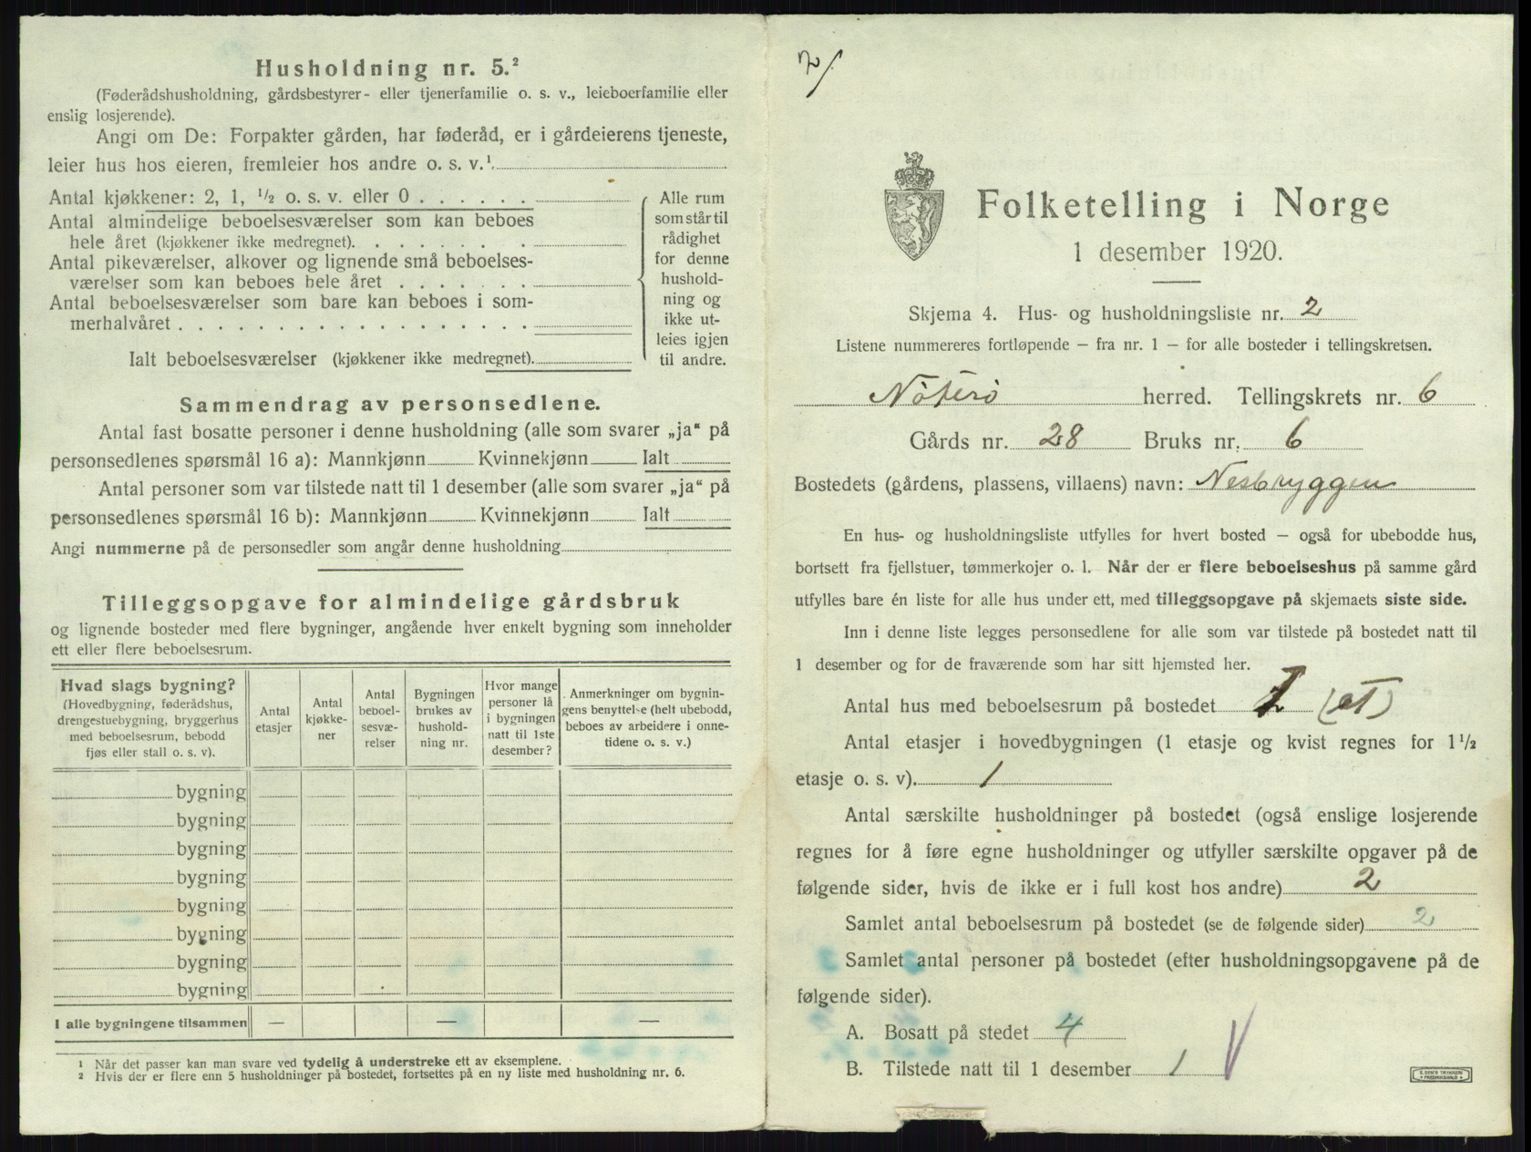 Husholdning nr. 5.²
(Føderådshusholdning, gårdsbestyrer- eller tjenerfamilie o. s. v., leieboerfamilie eller
enslig losjerende).
Angi om De: Forpakter gården, har føderåd, er i gårdeierens tjeneste,
leier hus hos eieren, fremleier hos andre o. s. v.¹
Antal kjøkkener: 2, 1, ½ o. s. v. eller 0 . . . . . .
Antal almindelige beboelsesværelser som kan beboes
hele året (kjøkkener ikke medregnet). . . . . . . .
Antal pikeværelser, alkover og lignende små beboelses-
værelser som kan beboes hele året . . . . . . .
Antal beboelsesværelser som bare kan beboes i som-
merhalvåret . . . . . . . . . . . . . . . . . .
Ialt beboelsesværelser (kjøkkener ikke medregnet).
Alle rum
som står til
rådighet
for denne
hushold-
ning og
ikke ut-
leies igjen
til andre.
Sammendrag av personsedlene.
Antal fast bosatte personer i denne husholdning (alle som svarer „ja“ på
personsedlenes spørsmål 16 a): Mannkjønn Kvinnekjønn Ialt
Antal personer som var tilstede natt til 1 desember (alle som svarer „ja“ på
personsedlenes spørsmål 16 b): Mannkjønn Kvinnekjønn Ialt
Angi nummerne på de personsedler som angår denne husholdning
Tilleggsopgave for almindelige gårdsbruk
og lignende bosteder med flere bygninger, angående hver enkelt bygning som inneholder
ett eller flere beboelsesrum.
Hvad slags bygning?
(Hovedbygning, føderådshus,
drengestuebygning, bryggerhus
med beboelsesrum, bebodd
fjøs eller stall o. s. v).
Antal
etasjer
Antal
kjøkke-
ner
Antal
beboel-
sesvæ-
relser
Bygningen
brukes av
hushold-
ning nr.
Hvor mange
personer lå
i bygningen
natt til 1ste
desember?
Anmerkninger om bygnin-
gens benyttelse (helt ubebodd,
beboes av arbeidere i onne-
tidene o. s. v.)
bygning
bygning
bygning
bygning
bygning
bygning
bygning
bygning
I alle bygningene tilsammen — — —
¹ Når det passer kan man svare ved tydelig å understreke ett av eksemplene.
² Hvis der er flere enn 5 husholdninger på bostedet, fortsettes på en ny liste med husholdning nr. 6.
2/
Folketelling i Norge
1 desember 1920.
Skjema 4. Hus- og husholdningsliste nr. 2
Listene nummereres fortløpende — fra nr. 1 — for alle bosteder i tellingskretsen.
Nøterø herred. Tellingskrets nr. 6
Gårds nr. 28 Bruks nr. 6
Bostedets (gårdens, plassens, villaens) navn: Nesbryggen
En hus- og husholdningsliste utfylles for hvert bosted — også for ubebodde hus,
bortsett fra fjellstuer, tømmerkojer o. l. Når der er flere beboelseshus på samme gård
utfylles bare én liste for alle hus under ett, med tilleggsopgave på skjemaets siste side.
Inn i denne liste legges personsedlene for alle som var tilstede på bostedet natt til
1 desember og for de fraværende som har sitt hjemsted her.
Antal hus med beboelsesrum på bostedet 1 (et)
Antal etasjer i hovedbygningen (1 etasje og kvist regnes for 1½
etasje o. s. v). 1
Antal særskilte husholdninger på bostedet (også enslige losjerende
regnes for å føre egne husholdninger og utfyller særskilte opgaver på de
følgende sider, hvis de ikke er i full kost hos andre) 2
Samlet antal beboelsesrum på bostedet (se de følgende sider) 2
Samlet antal personer på bostedet (efter husholdningsopgavene på de
følgende sider).
A. Bosatt på stedet 4
B. Tilstede natt til 1 desember 1